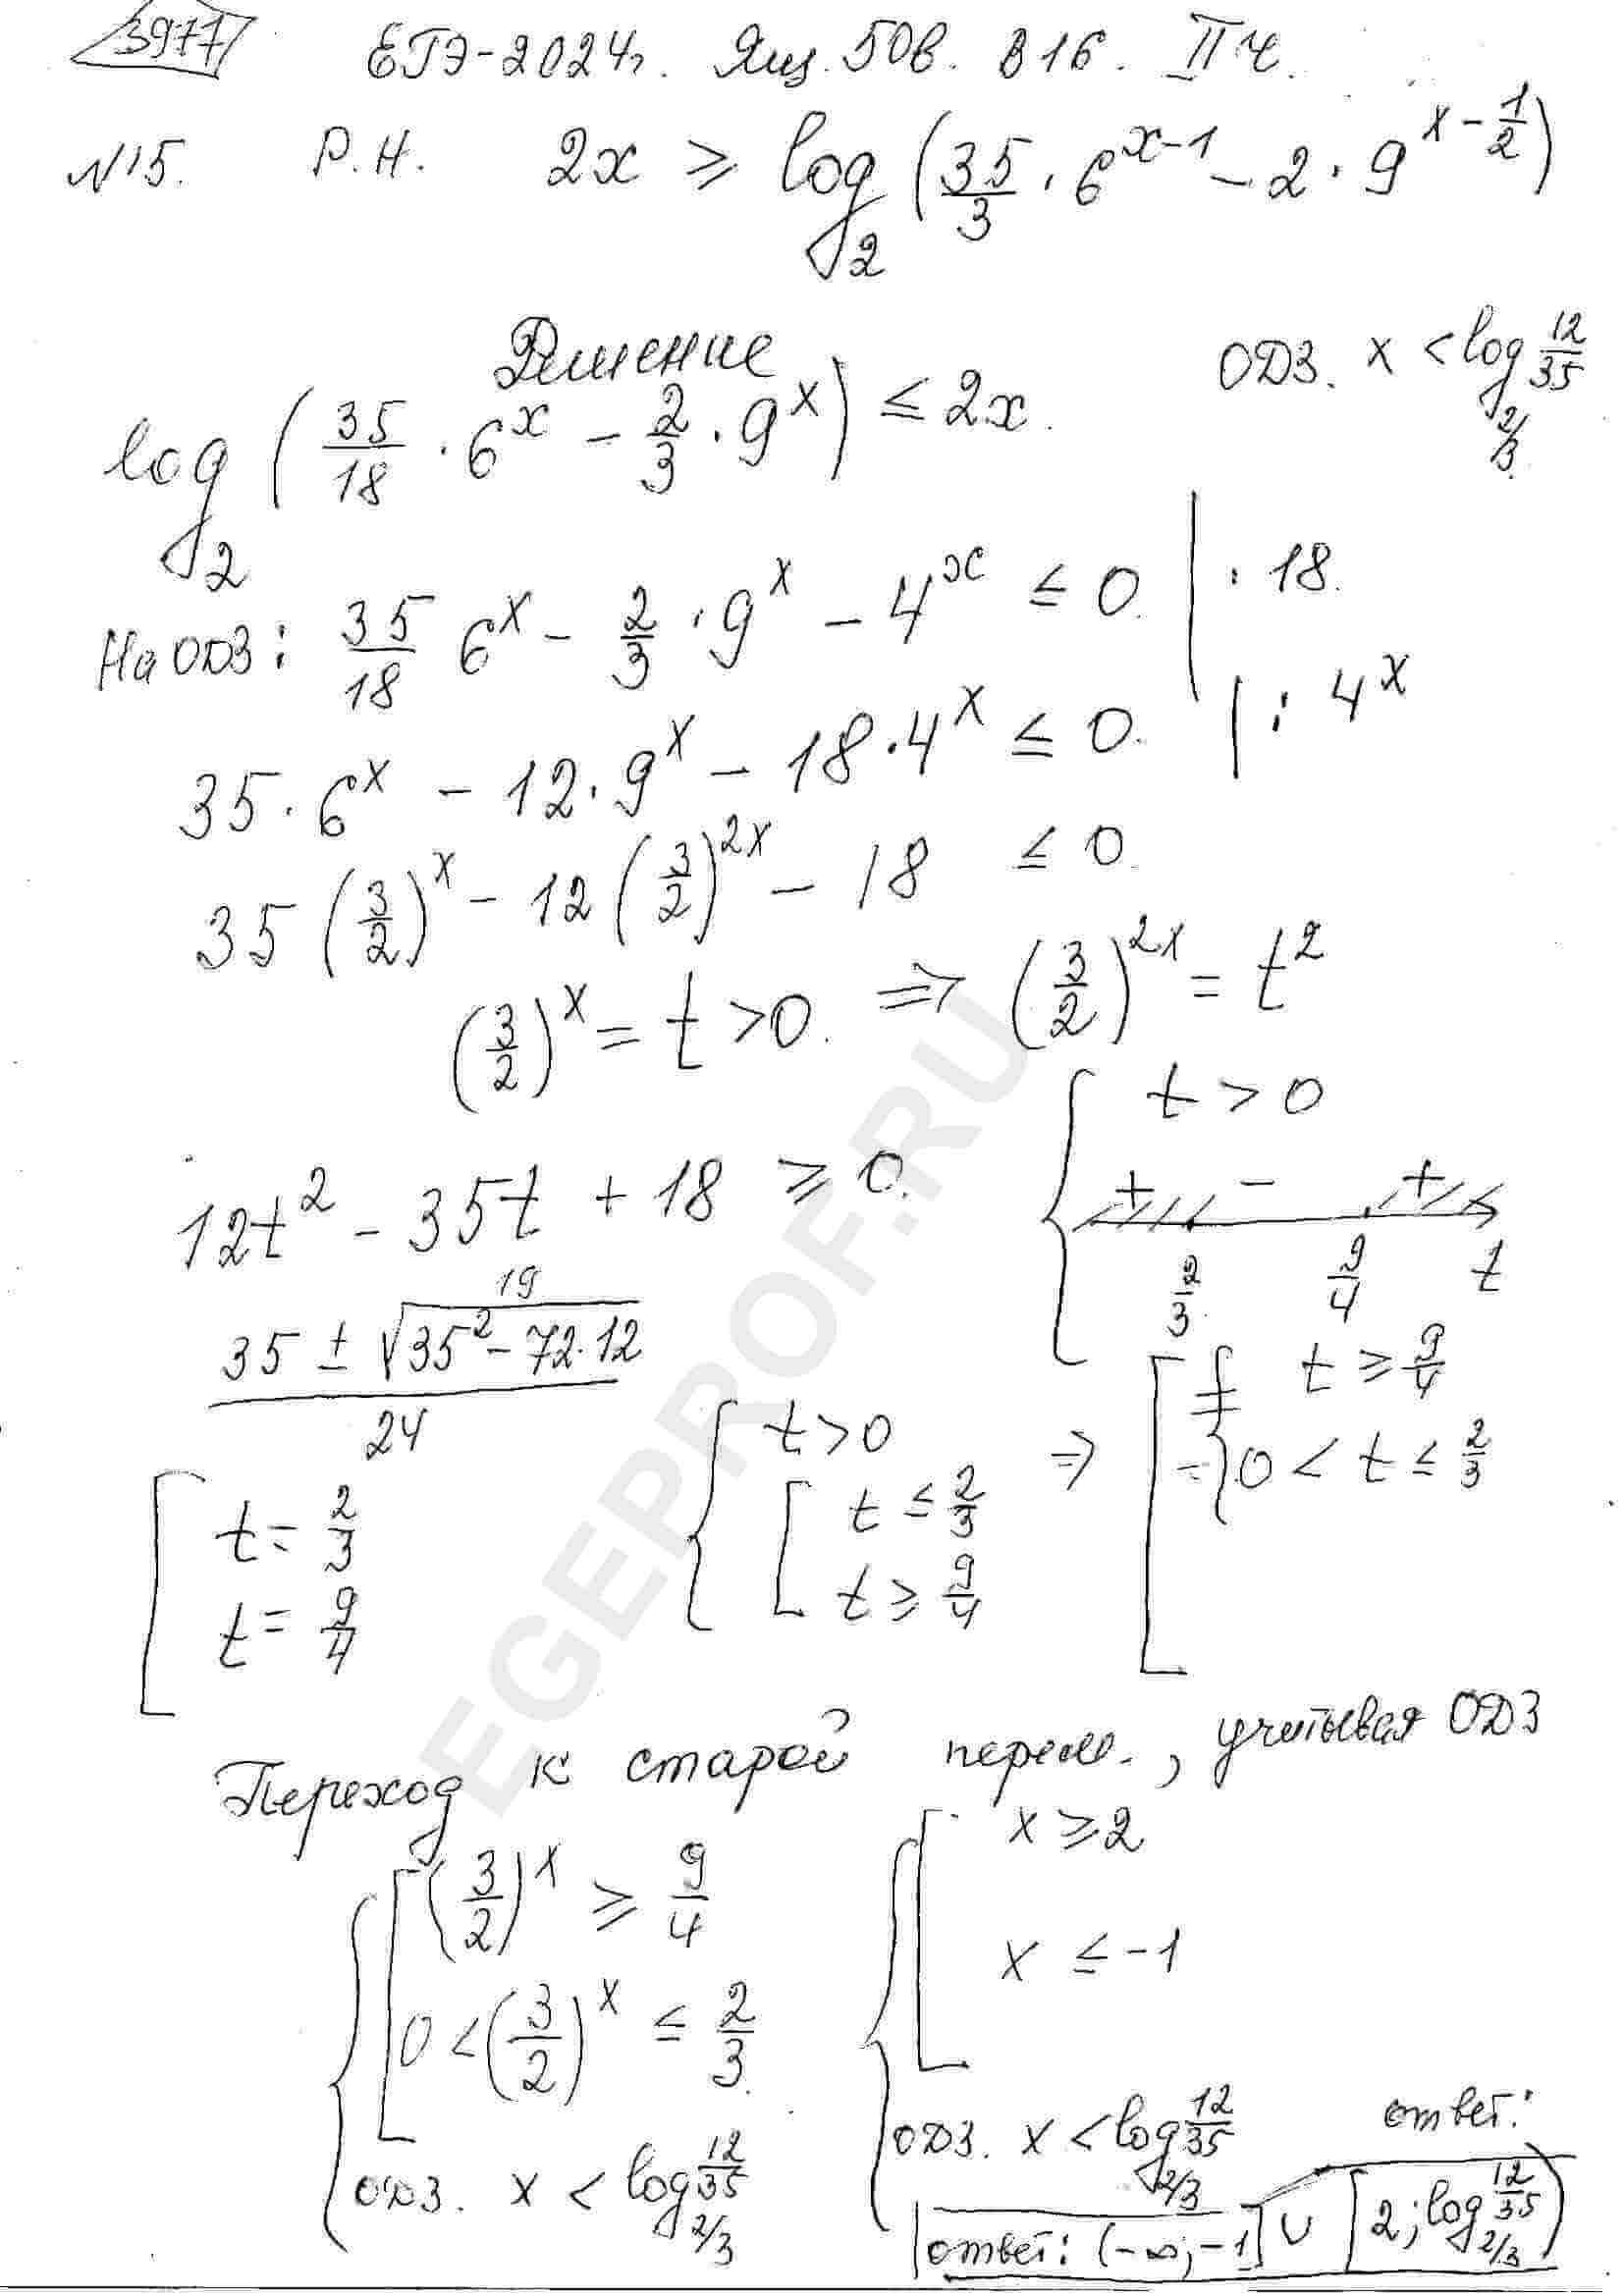 3977 ЕГЭ-2024г. Ящ. 50в. В 16. II ч.
№15. Р.Н. 2x ≥ log_2 (35/3 · 6^(x-1) - 2 · 9^(x - 1/2))
Решение ОДЗ. x < log_(2/3) 12/35
log_2 (35/18 · 6^x - 2/3 · 9^x) ≤ 2x.
На ОДЗ: 35/18 6^x - 2/3 · 9^x - 4^x ≤ 0. | · 18.
35 · 6^x - 12 · 9^x - 18 · 4^x ≤ 0. | : 4^x
35 (3/2)^x - 12 (3/2)^(2x) - 18 ≤ 0.
(3/2)^x = t > 0. ⇒ (3/2)^(2x) = t^2
t > 0
12t^2 - 35t + 18 ≥ 0.
+ - +
2/3 9/4 t
19
35 ± √(35^2 - 72·12)
24
t = 2/3
t = 9/4
t > 0
t ≤ 2/3
t ≥ 9/4
⇒ t ≥ 9/4
0 < t ≤ 2/3
Переход к старой перем., учитывая ОДЗ
(3/2)^x ≥ 9/4
0 < (3/2)^x ≤ 2/3.
ОДЗ. x < log_(2/3) 12/35
x ≥ 2
x ≤ -1
ОДЗ. x < log_(2/3) 12/35
ответ:
ответ: (-∞; -1] ∪ [2; log_(2/3) 12/35)
EGEPROF.RU